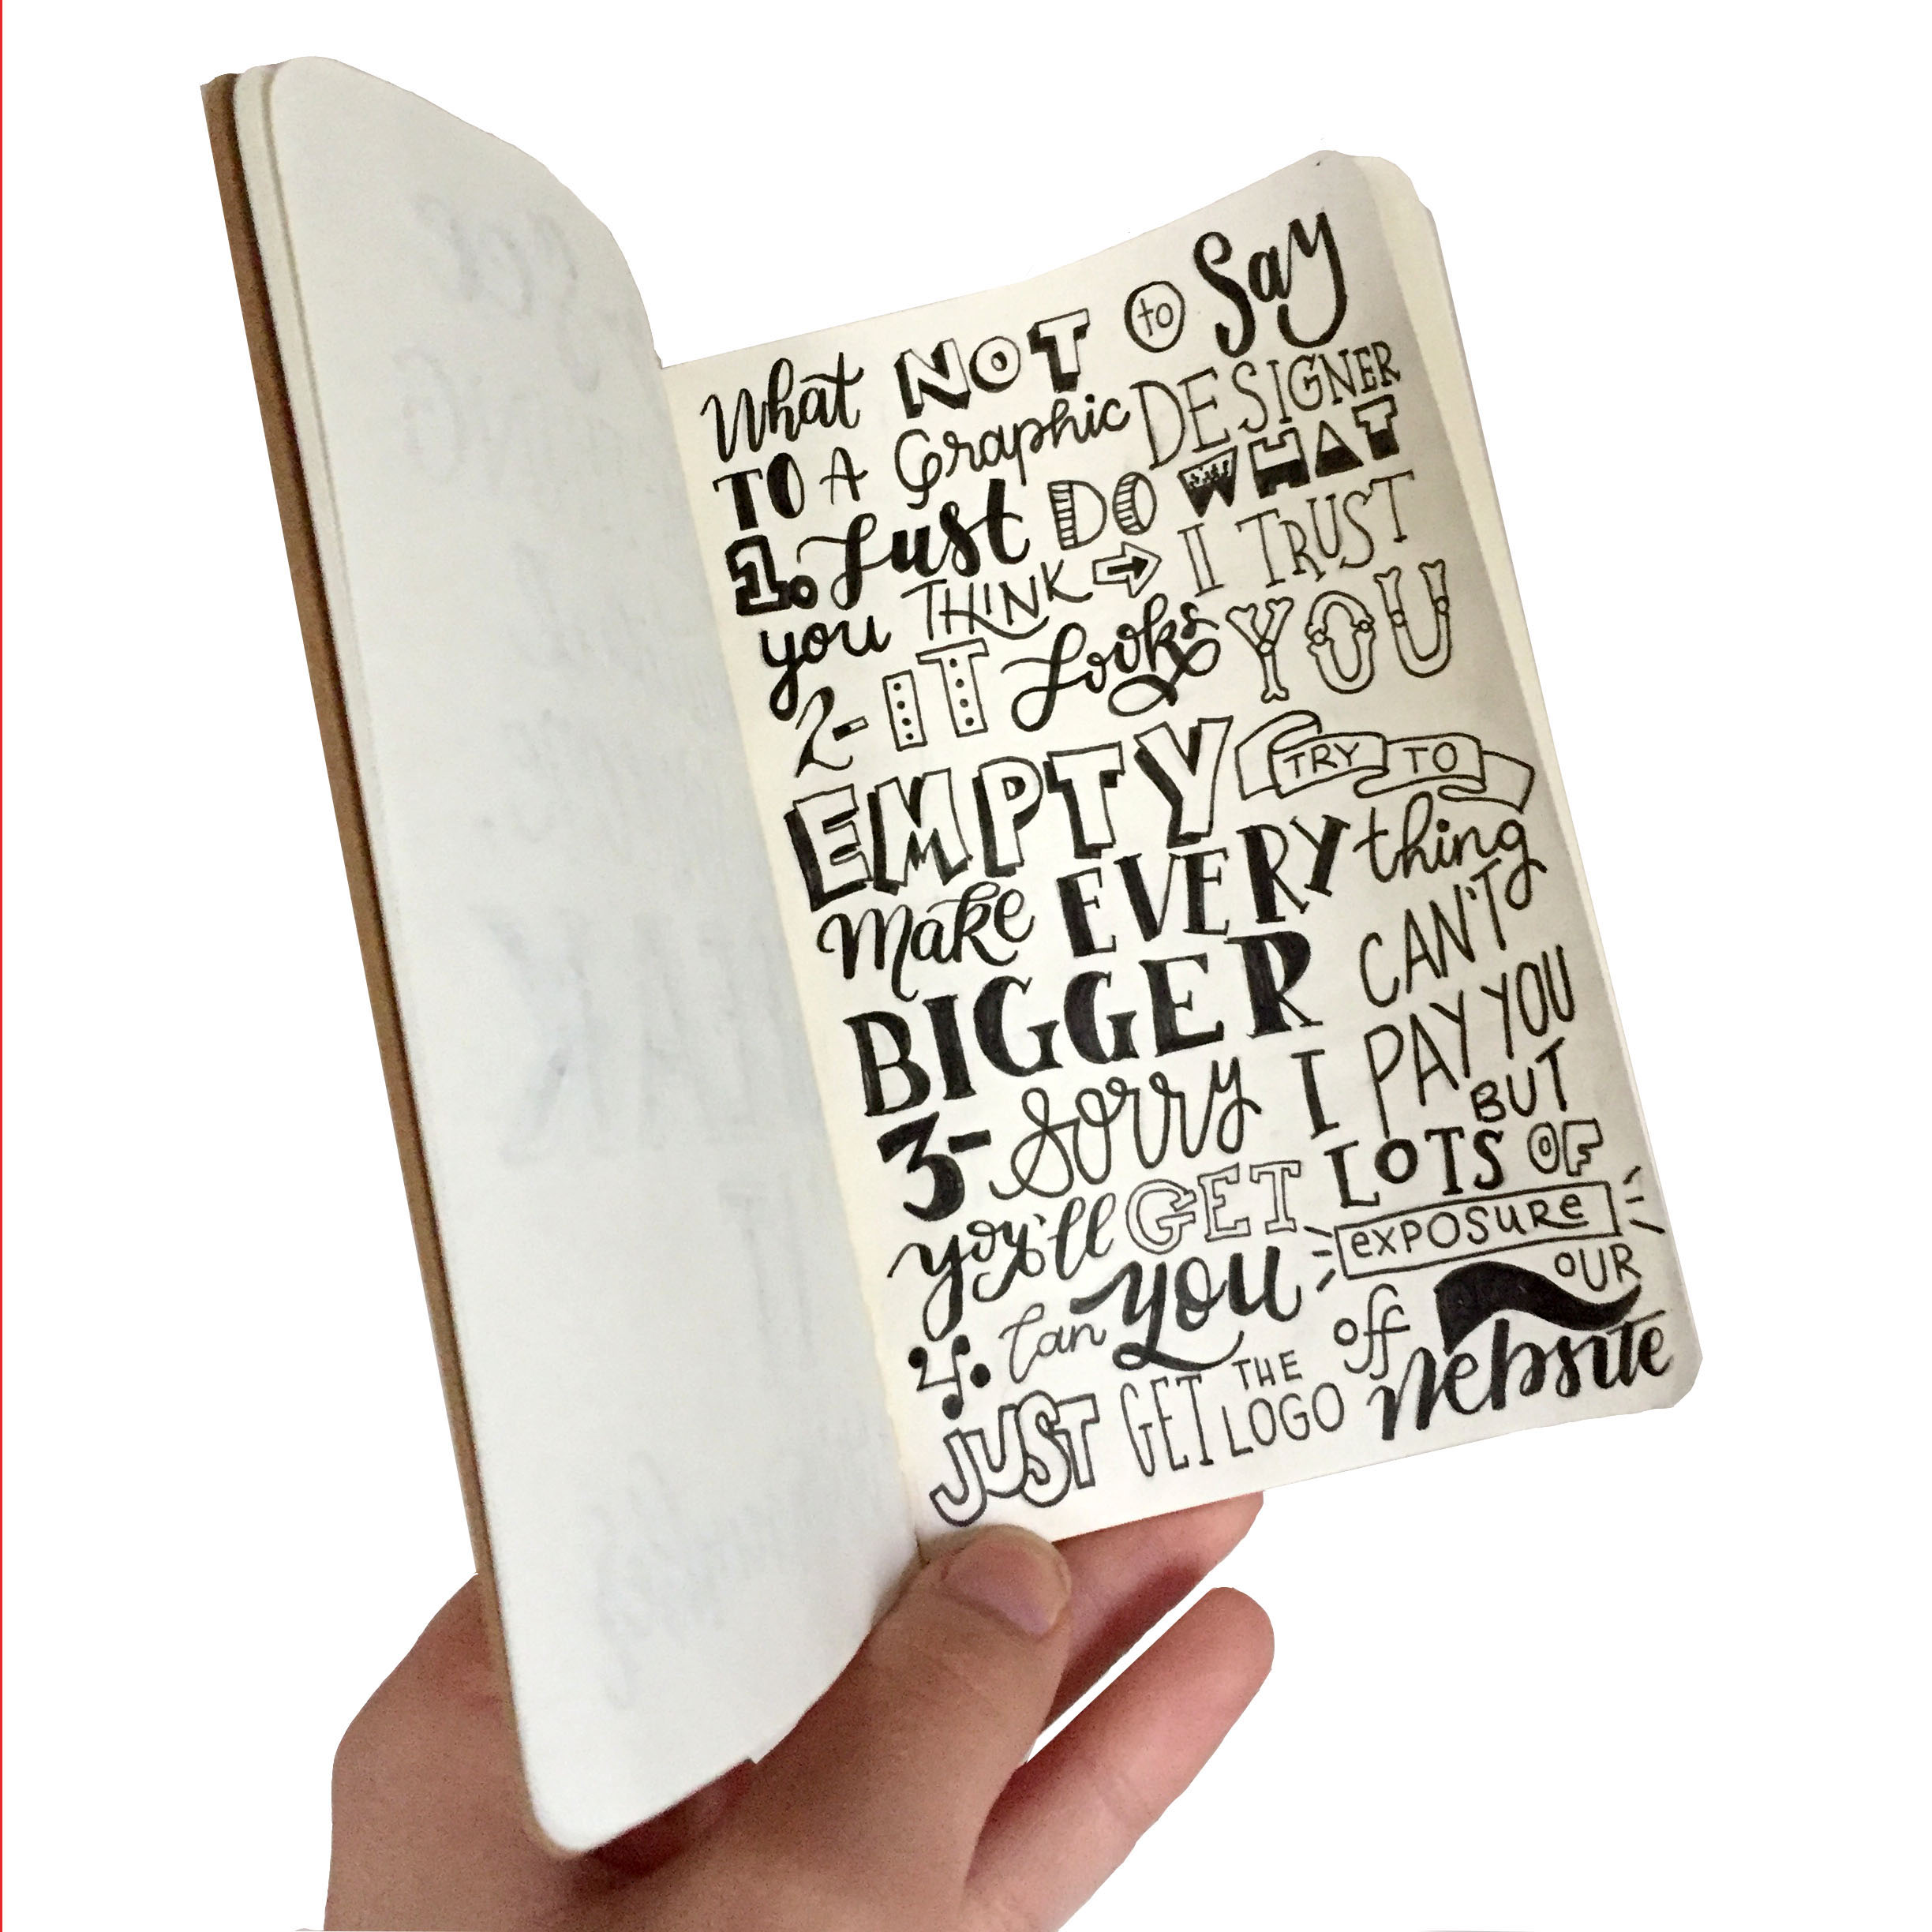 What NOT to Say
TO A Graphic DESIGNER
1. Just DO WHAT
you THINK → I TRUST
2- IT Looks YOU
EMPTY TRY TO
Make EVERYthing
BIGGER CAN'T
3- Sorry I PAY YOU
BUT
you'll GET LOTS OF
exposure
4. Can you off OUR
JUST GET THE LOGO Website